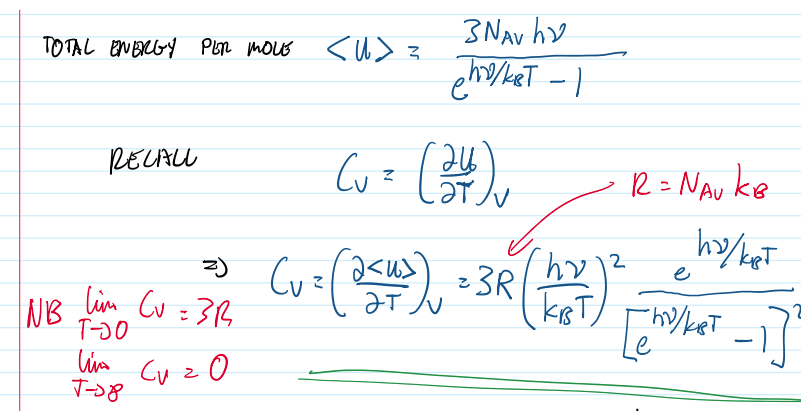 TOTAL ENERGY PER MOLE <U> = 3N_AV hν / (e^(hν/k_BT) - 1)
RECALL C_V = (∂U/∂T)_V R = N_AV k_B
=) C_V = (∂<U>/∂T)_V = 3R (hν/k_BT)^2 e^(hν/k_BT) / [e^(hν/k_BT) - 1]^2
NB lim T→0 C_V = 3R
lim T→∞ C_V = 0